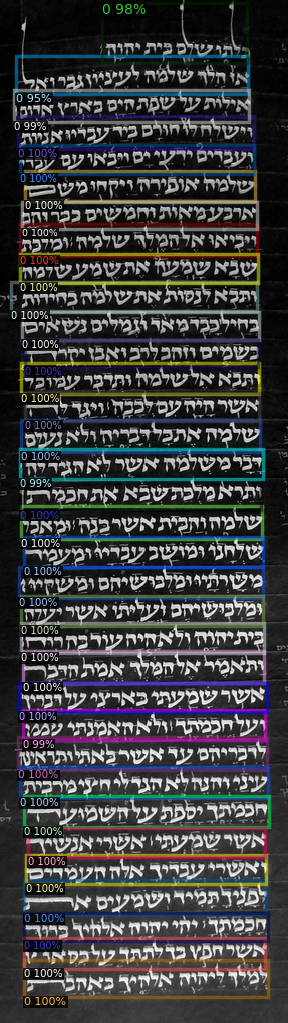 0 98%
כלתו שלם בית יהוה
אז הלך שלמה לעציון גבר ואל
0 95%
אילות על שפת הים בארץ אדום
0 99%
וישלח לו חורם ביד עבדיו אניות
0 100%
ועבדים ידעי ים ויבאו עם עבדי
0 100%
שלמה אופירה ויקחו משם
0 100%
ארבע מאות וחמשים ככר זהב
0 100%
ויביאו אל המלך שלמה ומלכת
0 100%
שבא שמעה את שמע שלמה
0 100%
ותבא לנסות את שלמה בחידות
0 100%
בחיל כבד מאד וגמלים נשאים
0 100%
בשמים וזהב לרב ואבן יקרה
0 100%
ותבא אל שלמה ותדבר עמו כל
0 100%
אשר היה עם לבבה ויגד לה
0 100%
שלמה את כל דבריה ולא נעלם
0 100%
דבר משלמה אשר לא הגיד לה
0 99%
ותרא מלכת שבא את חכמת
0 100%
שלמה והבית אשר בנה ומאכל
0 100%
שלחנו ומושב עבדיו ומעמד
0 100%
משרתיו ומלבושיהם ומשקיו
0 100%
ומלבושיהם ועליתו אשר יעלה
0 100%
בית יהוה ולא היה עוד בה רוח
0 100%
ותאמר אל המלך אמת הדבר
0 100%
אשר שמעתי בארצי על דבריך
0 100%
ועל חכמתך ולא האמנתי
0 99%
לדבריהם עד אשר באתי ותראינה
0 100%
עיני והנה לא הגד לי חצי מרבית
0 100%
חכמתך יספת על השמועה
0 100%
אשר שמעתי אשרי אנשיך
0 100%
ואשרי עבדיך אלה העמדים
0 100%
לפניך תמיד ושמעים את
0 100%
חכמתך יהי יהוה אלהיך ברוך
0 100%
אשר חפץ בך לתתך על כסאו
0 100%
למלך ליהוה אלהיך באהבת
0 100%